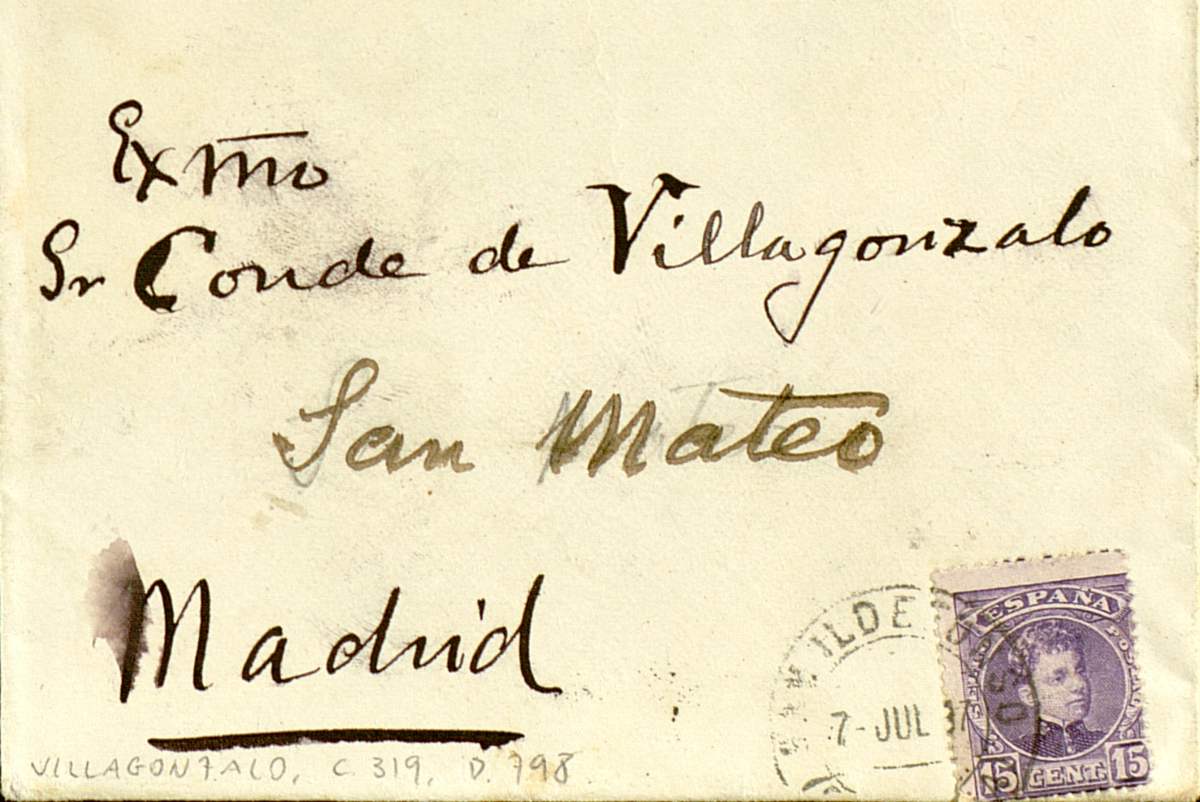 Exmo
Sr Conde de Villagonzalo
San Mateo
Madrid
VILLAGONZALO, C. 319, D. 798
ILDE
7-JUL 07
ESPAÑA
15 CENT. 15